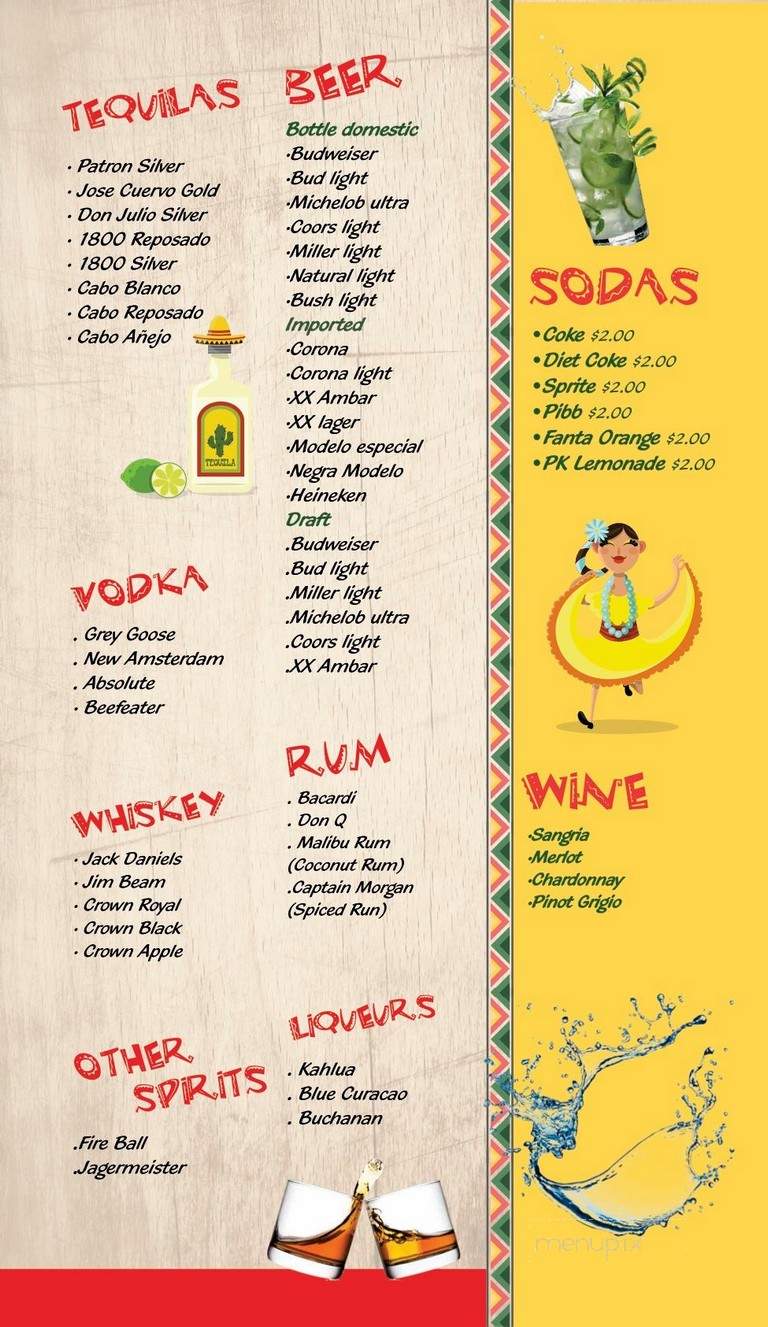 TEQUILAS
· Patron Silver
· Jose Cuervo Gold
· Don Julio Silver
· 1800 Reposado
· 1800 Silver
· Cabo Blanco
· Cabo Reposado
· Cabo Añejo
TEQUILA
VODKA
. Grey Goose
. New Amsterdam
. Absolute
· Beefeater
WHISKEY
· Jack Daniels
· Jim Beam
· Crown Royal
· Crown Black
· Crown Apple
OTHER
SPIRITS
.Fire Ball
.Jagermeister
BEER
Bottle domestic
·Budweiser
·Bud light
·Michelob ultra
·Coors light
·Miller light
·Natural light
·Bush light
Imported
·Corona
·Corona light
·XX Ambar
·XX lager
·Modelo especial
·Negra Modelo
·Heineken
Draft
.Budweiser
.Bud light
.Miller light
.Michelob ultra
.Coors light
.XX Ambar
RUM
. Bacardi
. Don Q
. Malibu Rum
(Coconut Rum)
.Captain Morgan
(Spiced Run)
LIQUEURS
. Kahlua
. Blue Curacao
. Buchanan
SODAS
•Coke $2.00
•Diet Coke $2.00
•Sprite $2.00
•Pibb $2.00
•Fanta Orange $2.00
•PK Lemonade $2.00
WINE
·Sangria
·Merlot
·Chardonnay
·Pinot Grigio
menupix